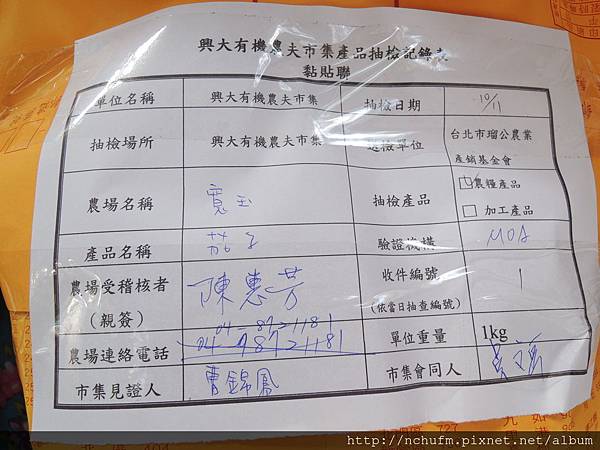 興大有機農夫市集產品抽檢記錄表
黏貼聯
單位名稱 興大有機農夫市集 抽檢日期 10/11
抽檢場所 興大有機農夫市集 送檢單位 台北市瑠公農業
產銷基金會
農場名稱 寬玉 抽檢產品 農糧產品
加工產品
產品名稱 茄子 驗證機構 MOA
農場受稽核者 陳惠芳 收件編號 1
(親簽) (依當日抽查編號)
04-8721181
農場連絡電話 單位重量 1kg
市集見證人 曹錦鳳 市集會同人
http://nchufm.pixnet.net/album